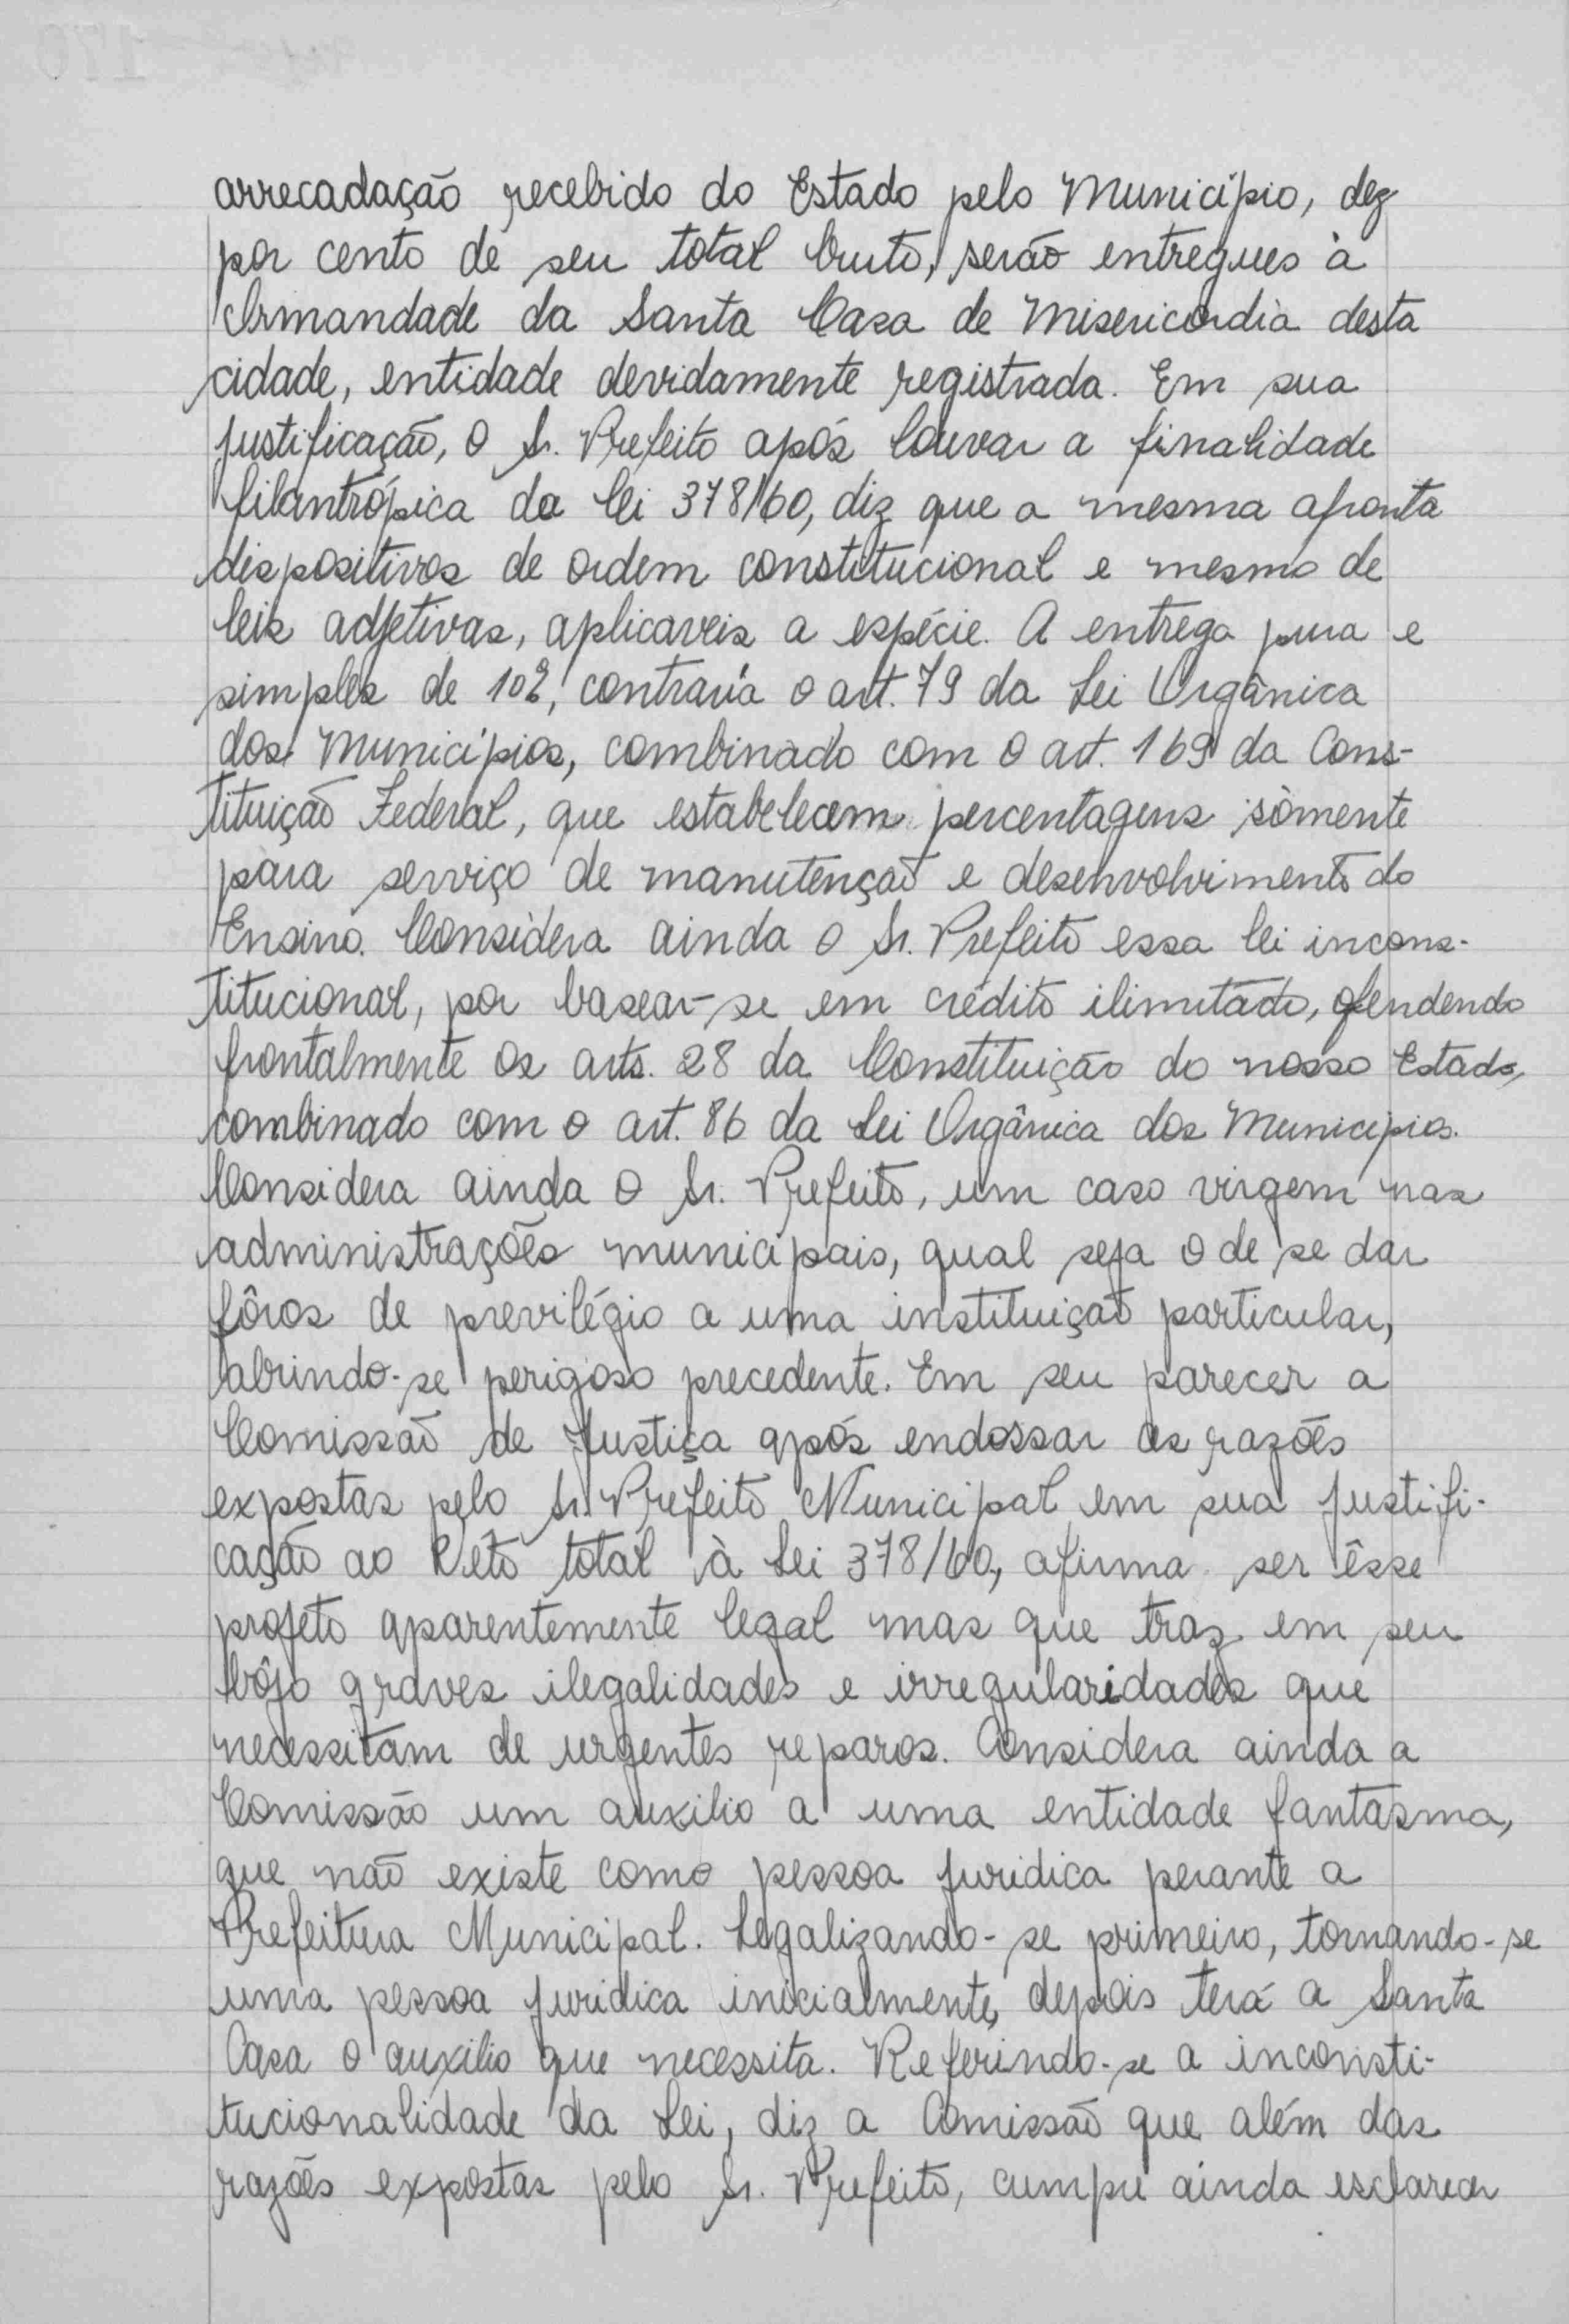 arrecadação recebido do Estado pelo Município, dez
por cento de seu total bruto, serão entregues à
Irmandade da Santa Casa de Misericórdia desta
cidade, entidade devidamente registrada. Em sua
justificação, o Sr. Prefeito após louvar a finalidade
filantrópica da lei 378/60, diz que a mesma afronta
dispositivos de ordem constitucional e mesmo de
leis adjetivas, aplicaveis a espécie. A entrega pura e
simples de 10%, contraria o art. 79 da Lei Orgânica
dos Municípios, combinado com o art. 169 da Cons-
tituição Federal, que estabelecem percentagens sòmente
para serviço de manutenção e desenvolvimento do
Ensino. Considera ainda o Sr. Prefeito essa lei incons-
titucional, por basear-se em crédito ilimitado, ofendendo
frontalmente os arts. 28 da Constituição do nosso Estado,
combinado com o art. 86 da Lei Orgânica dos Municipios.
Considera ainda o Sr. Prefeito, um caso virgem nas
administrações municipais, qual seja o de se dar
fôros de previlégio a uma instituição particular,
abrindo-se perigoso precedente. Em seu parecer a
Comissão de Justiça após endossar as razões
expostas pelo Sr. Prefeito Municipal em sua justifi-
cação ao Veto total à Lei 378/60, afirma ser êsse
projeto aparentemente legal mas que traz em seu
bôjo graves ilegalidades e irregularidades que
necessitam de urgentes reparos. Considera ainda a
Comissão um auxilio a uma entidade fantasma,
que não existe como pessoa juridica perante a
Prefeitura Municipal. Legalizando-se primeiro, tornando-se
uma pessoa juridica inicialmente, depois terá a Santa
Casa o auxilio que necessita. Referindo-se a inconsti-
tucionalidade da Lei, diz a Comissão que além das
razões expostas pelo Sr. Prefeito, cumpre ainda esclarecer